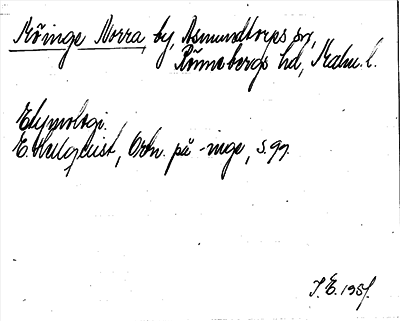 Röinge Norra, by, Asmundtorps sn,
Rönnebergs hd, Malm. l.
Etymologi.
E. Hellquist, Ortn. på -inge, s. 99.
J. E. 1951.